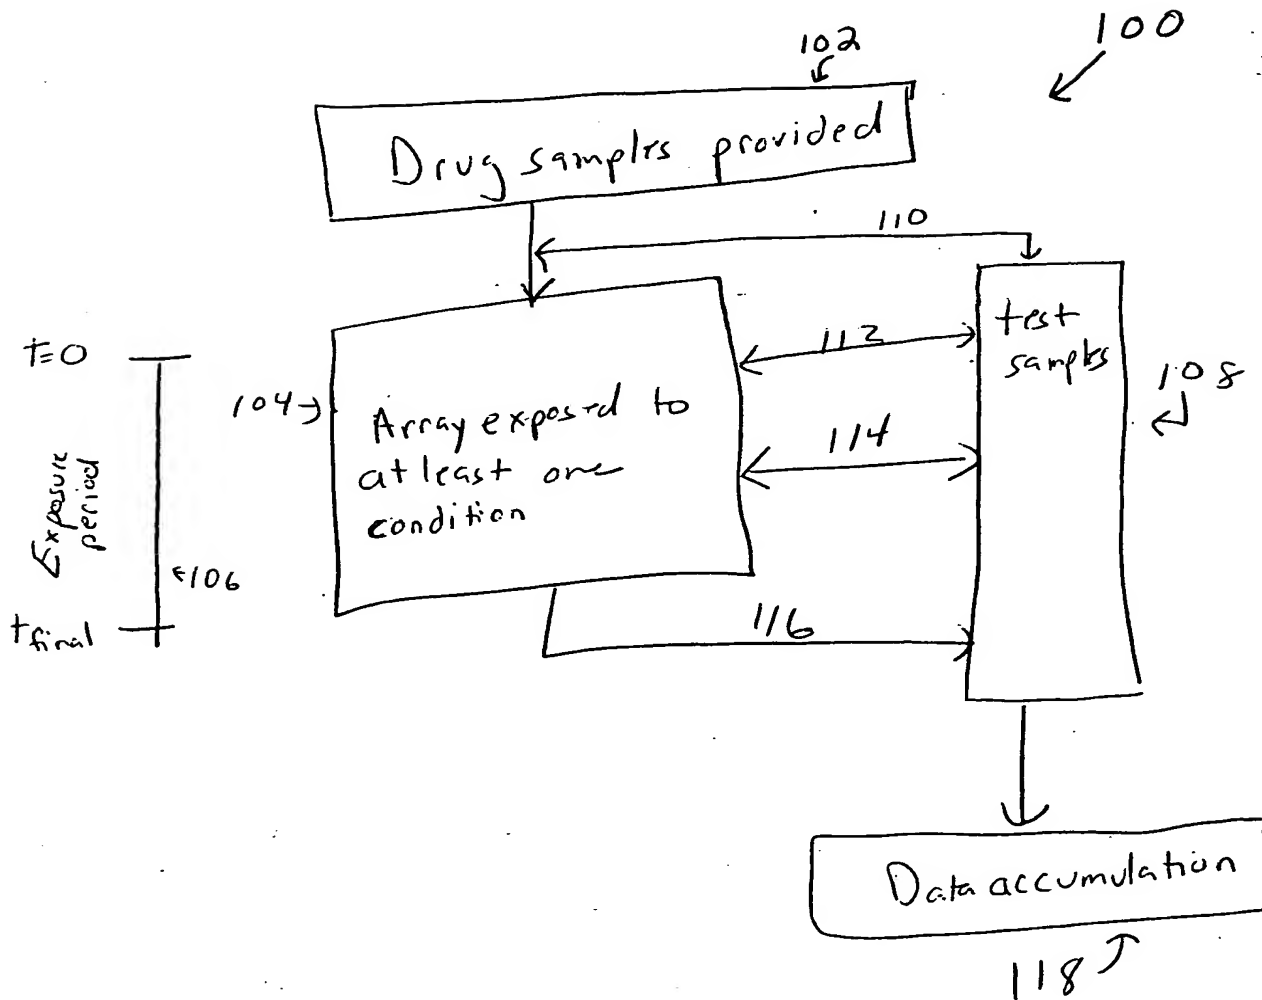 100
102
Drug samples provided
110
t=0
104
Array exposed to
at least one
condition
112
114
test
samples
108
Exposure
period
106
t final
116
Data accumulation
118